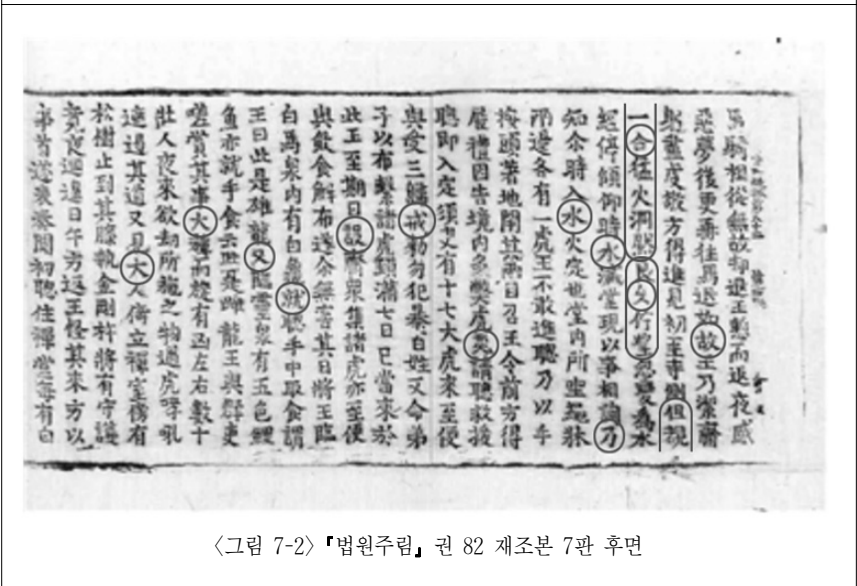 馬騎相從無故却退王慚而退夜感
惡夢後更再往馬退如故王乃潔齋
躬盡虔敬方得進見初至寺側但覩
一合猛火洞然良久佇望忽變為水
經停傾仰時水滅堂現以事相詢乃
知尒時入水火定也堂內所坐繩牀
兩邊各有一虎王不敢進聰乃以手
按頭著地閉其兩目召王令前方得
展禮因告境內多弊虎災請聰救援
聰即入定須臾有十七大虎來至便
與受三歸戒勅勿犯暴百姓又命弟
子以布繫諸虎頸滿七日已當來於
此王至期日設齋衆集諸虎亦至便
與飲食解布遂尒無害其日將王臨
白馬泉內有白龜就聰手中取食謂
王曰此是雄龍又臨靈泉有五色鯉
魚亦就手食云此是雌龍王與群吏
嗟賞其事大施而旋有凶左右數十
壯人夜來欲劫所施之物遇虎哮吼
遮遏其道又見大人倚立禪室傍有
松樹止到其膝執金剛杵將有守護
竟夜迴遑日午方返王怪其來方以
事首遂表奏聞初聰住禪堂每有白
〈그림 7-2〉『법원주림』 권 82 재조본 7판 후면